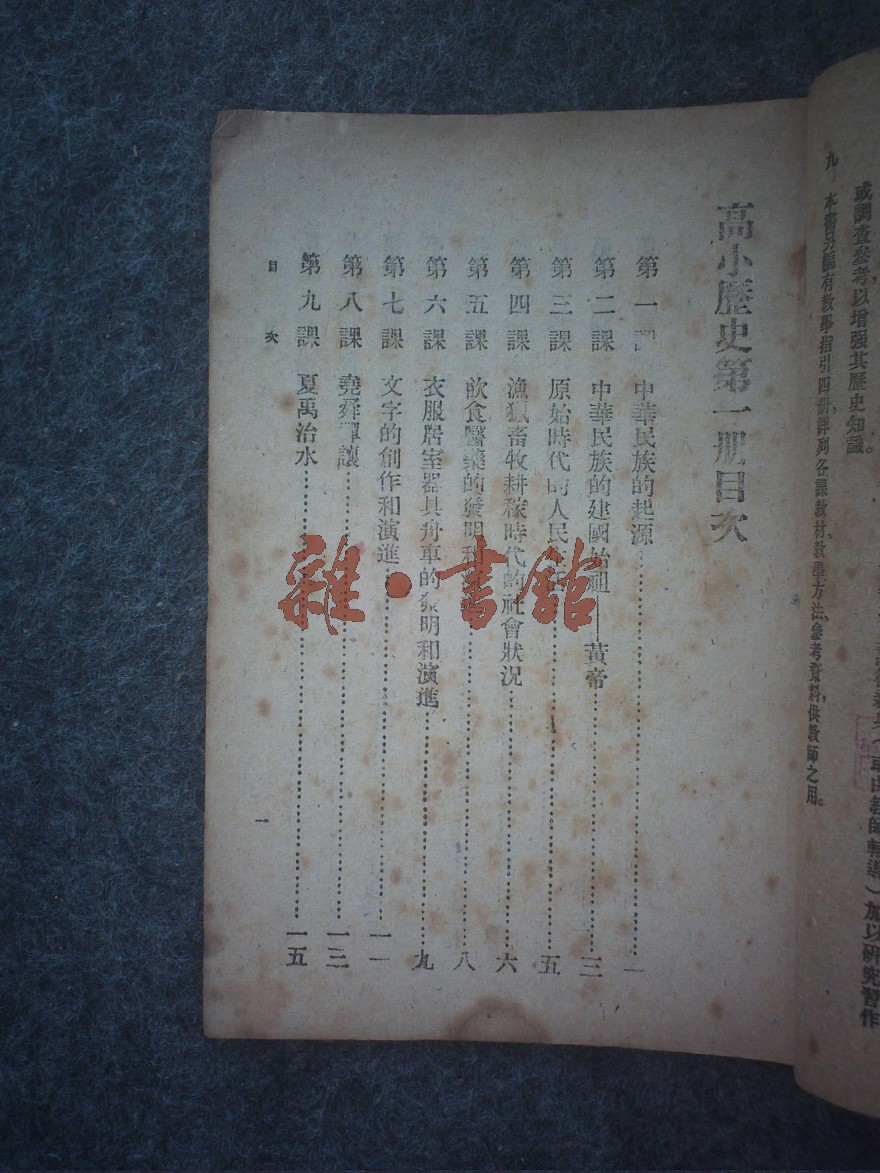 或調查參考以增强其歷史知識。
九 本書另編有教學指引四册，詳列各課教材、教學方法、參考資料，供教師之用。
高小歷史第一册目次
第一課 中華民族的起源……一
第二課 中華民族的建國始祖——黃帝……三
第三課 原始時代的人民生活……五
第四課 漁獵畜牧耕稼時代的社會狀況……六
第五課 飲食醫藥的發明和……八
第六課 衣服居室器具舟車的發明和演進……九
第七課 文字的創作和演進……一一
第八課 堯舜禪讓……一三
第九課 夏禹治水……一五
目次
一
雜·書館